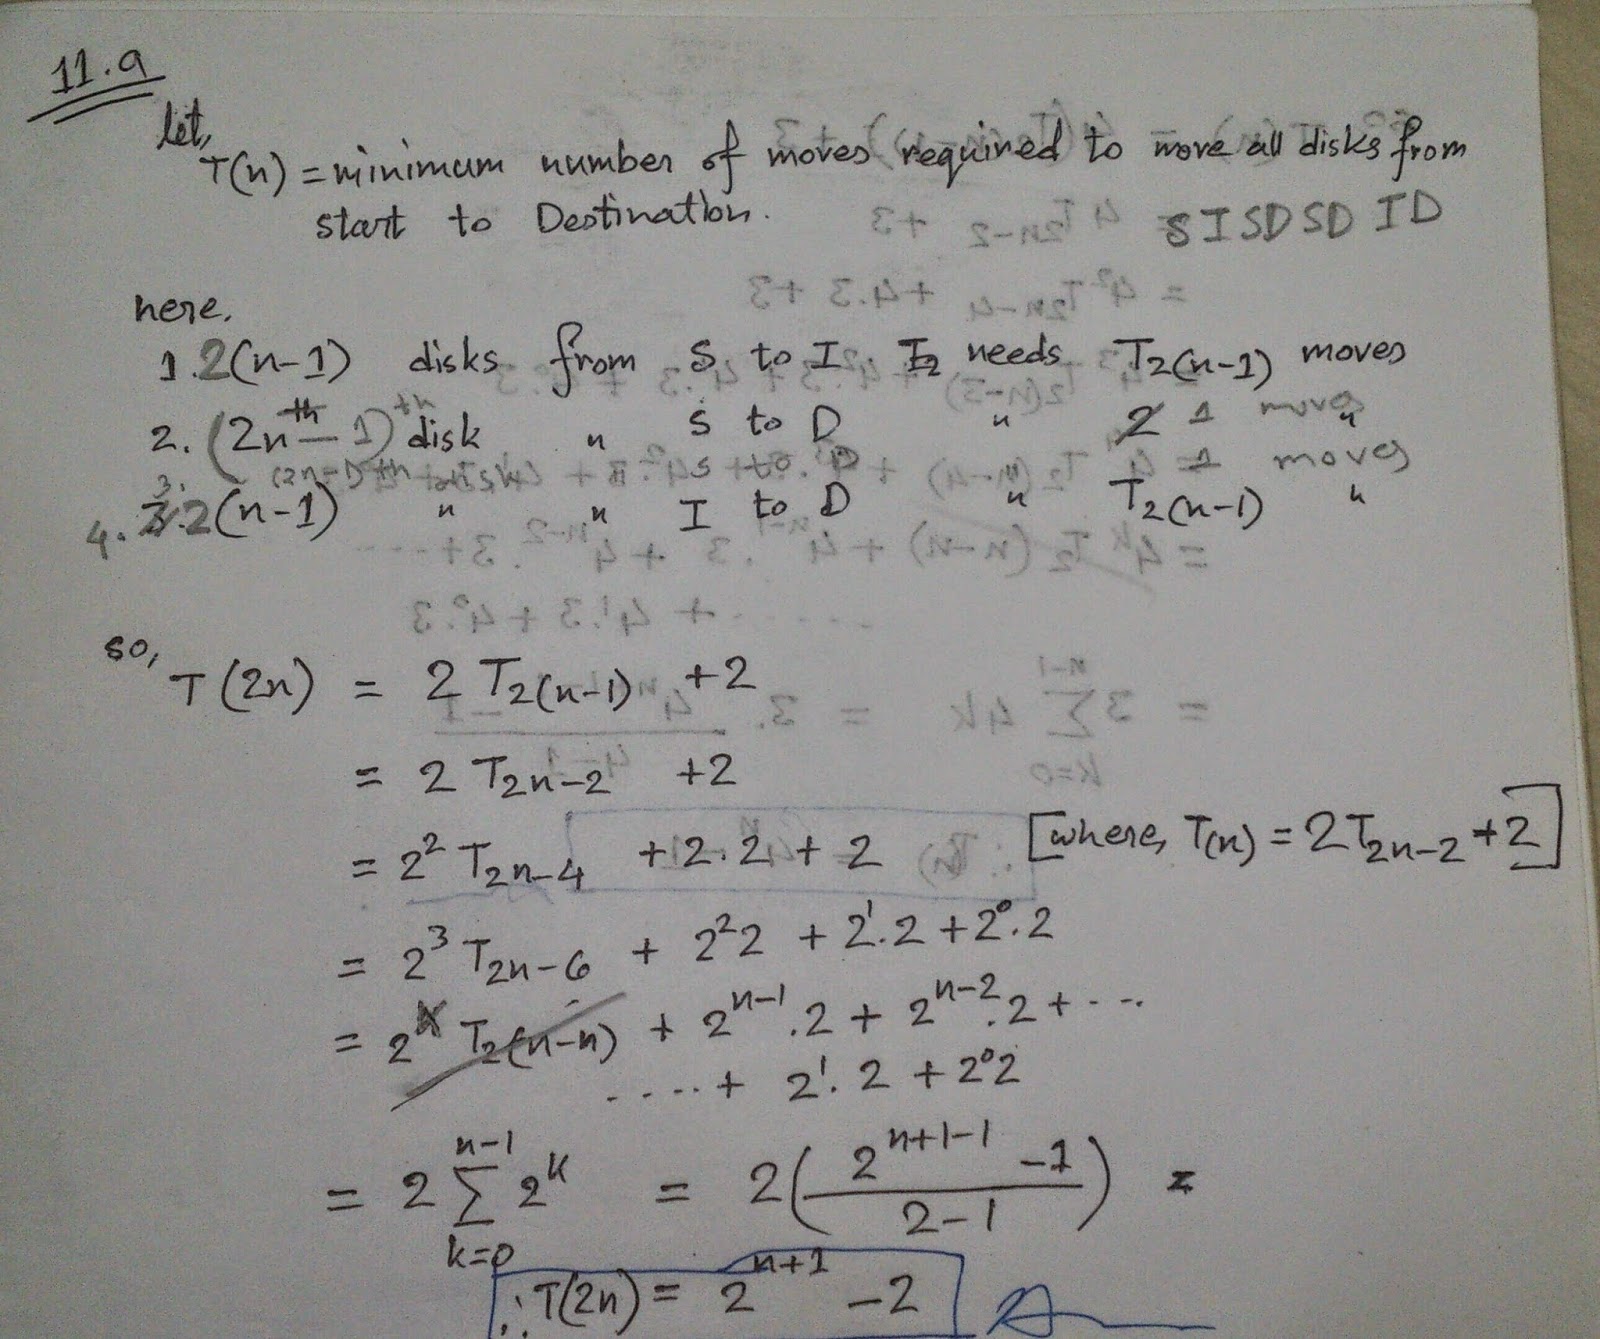 11.a
let,
T(n) = minimum number of moves required to move all disks from
start to Destination.
S I SD SD ID
here,
1. 2(n-1) disks from S to I. I₂ needs T₂(n-1) moves
2. (2n-1)th disk " S to D " 2 1 moves "
3. (2n-1)th " 1 moves
4. 3. 2(n-1) " " I to D " T₂(n-1) "
so,
T(2n) = 2 T₂(n-1) +2
= 2 T₂ₙ₋₂ +2
= 2² T₂ₙ₋₄ +2.2+2 [where, T(n) = 2T₂ₙ₋₂+2]
= 2³ T₂ₙ₋₆ + 2²2 + 2¹.2+2⁰.2
= 2ᵏ T₂(n-n) + 2ⁿ⁻¹.2 + 2ⁿ⁻².2 + ...
....+ 2¹.2 + 2⁰2
= 2 Σ_{k=0}^{n-1} 2ᵏ = 2( (2^{n+1-1} -1) / (2-1) ) =
∴ T(2n) = 2ⁿ⁺¹ -2